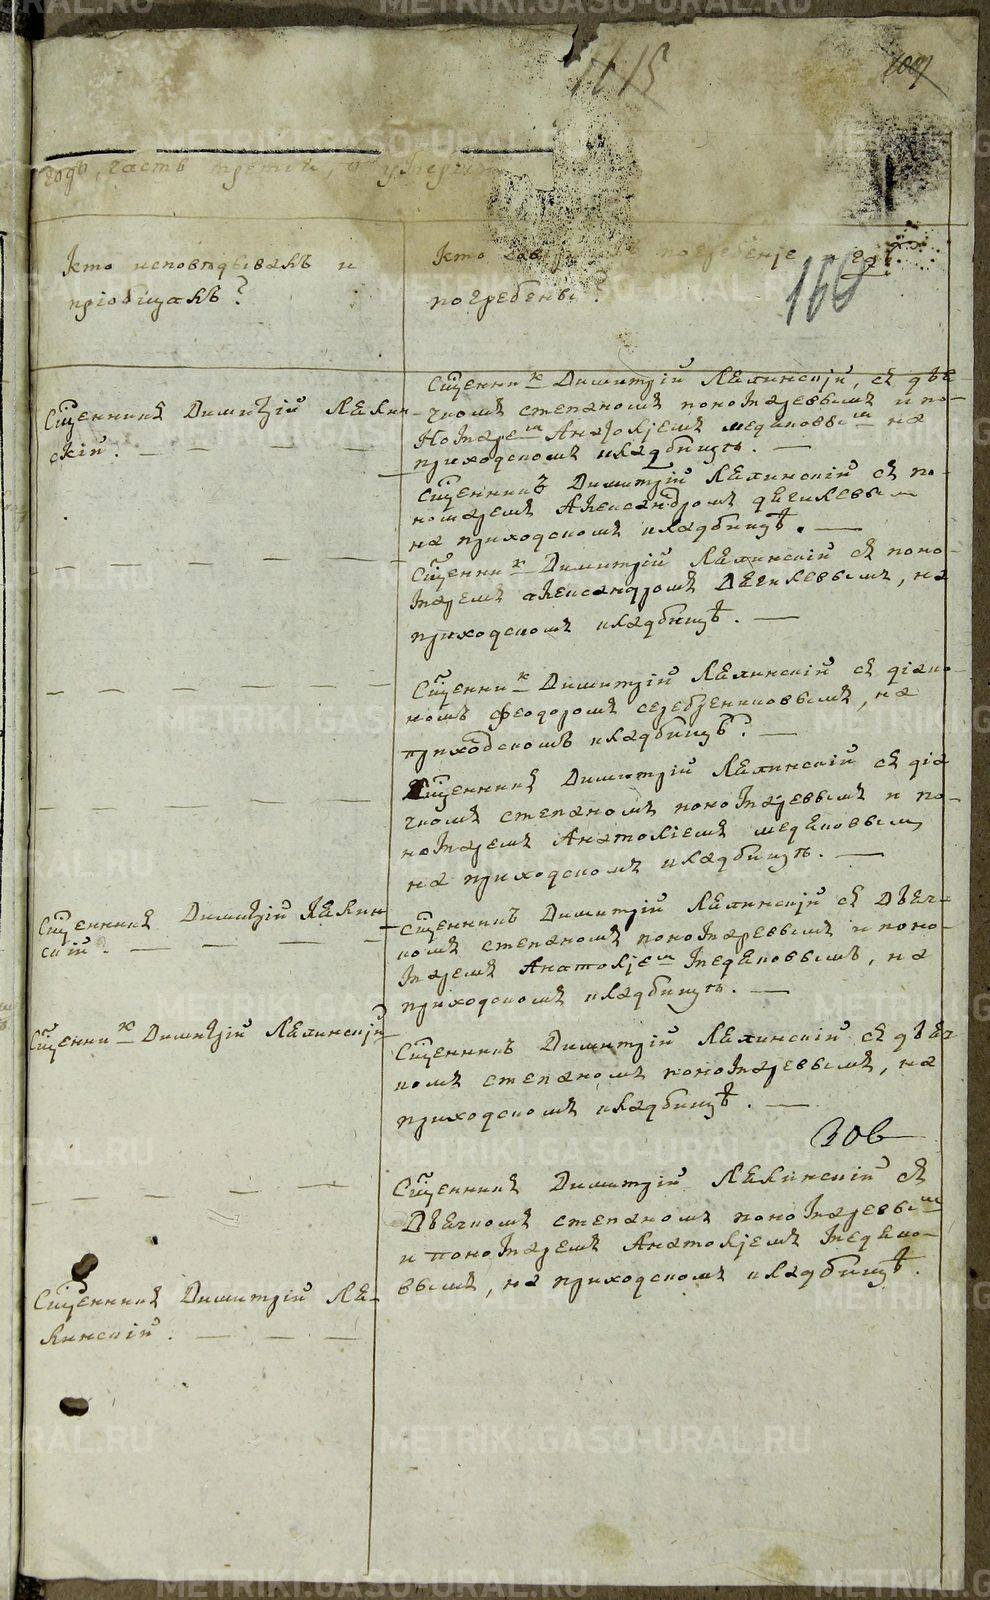 1115
1007
года, часть третья, о умерш
Кто исповѣдывалъ и
пріобщалъ?
Кто погребеніе и гдѣ
погребены?
166
Сщенникъ Димитрій Лѣлин-
скій.
Сщенник Димитрій Лѣлинскій, съ дьѣ-
чкомъ степаномъ понотаревымъ и по-
нотарем Анатоліемъ медѣновым на
приходскомъ кладбищѣ.
Сщенникъ Димитрій Лѣлинскій съ по-
номаремъ Александромъ
на приходскомъ кладбищѣ.
Сщенник Димитрій Лѣлинскій съ поно-
таремъ александромъ на
приходскомъ кладбищѣ.
Сщенник Димитрій Лѣлинскій съ діако-
номъ феодоромъ серебренниковымъ, на
приходскомъ кладбищѣ.
Сщенникъ Димитрій Лѣлинскій съ діа
чкомъ степаномъ понотаревымъ и по-
нотаремъ Анатоліемъ медѣновым,
на приходскомъ кладбищѣ.
Сщенникъ Димитрій Лѣлин-
скій.
Сщенникъ Димитрій Лѣлинскій съ Дьѣч-
комъ степаномъ понотаревымъ и поно-
таремъ Анатоліем медѣновымъ, на
приходскомъ кладбищѣ.
Сщенник Димитрій Лѣлинскій
Сщенникъ Димитрій Лѣлинскій съ дьѣч
комъ степаномъ понотаревымъ, на
приходскомъ кладбищѣ.
Сщенникъ Димитрій Лѣлинскій съ
Дьѣчкомъ степаномъ понотаревым
и понотаремъ Анатоліемъ медѣно-
вымъ, на приходскомъ кладбищѣ.
Сщенникъ Димитрій Лѣ-
линскій.
METRIKI.GASO-URAL.RU